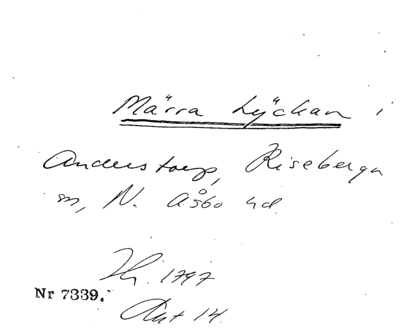 Märra Lyckan i
Anderstorp, Riseberga
sn, N. Åsbo hd.
Th. 1797
Nr 7339.
Akt 14.